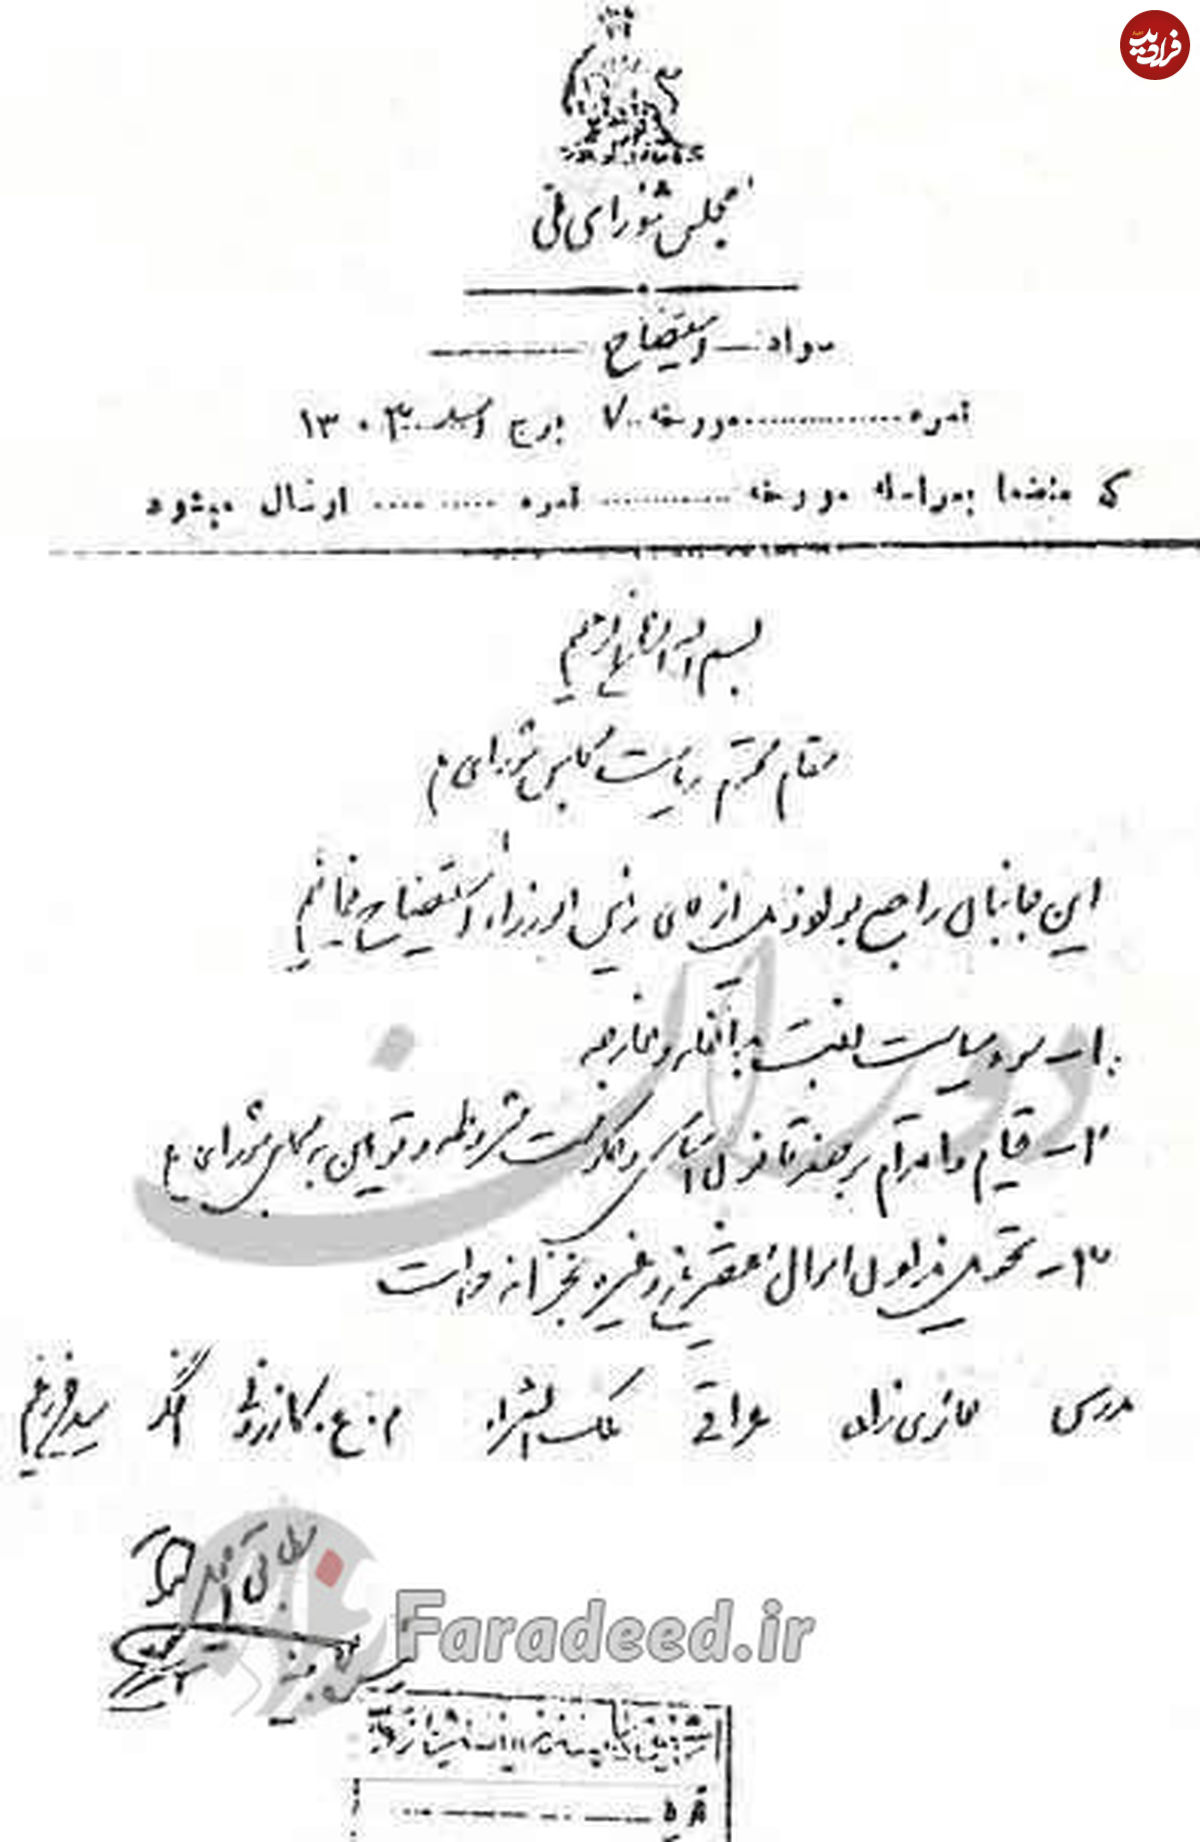 فرادید
مجلس شورای ملی
سواد استیضاح
نمره مورخه ۷ برج اسد ۱۳۰۳
که منضما بمراسله مورخه نمره ارسال میشود
بسم الله الرحمن الرحیم
مقام محترم ریاست مجلس شورای م
این جانبان راجع بمواد ذیل از آقای رئیس الوزراء استیضاح مینمائیم
۱ـ سوء سیاست نسبت بداخله و خارجه
۲ـ قیام و اقدام بر ضد قانون اساسی و حکومت مشروطه و توهین به مجلس شورای م
۳ـ تحویل ندادن اموال مقصرین و غیره بخزانه دولت
مدرس حائری زاده عراقی ملک الشعراء کازرونی اخگر سید
دوران
سواد
Faradeed.ir
نمره